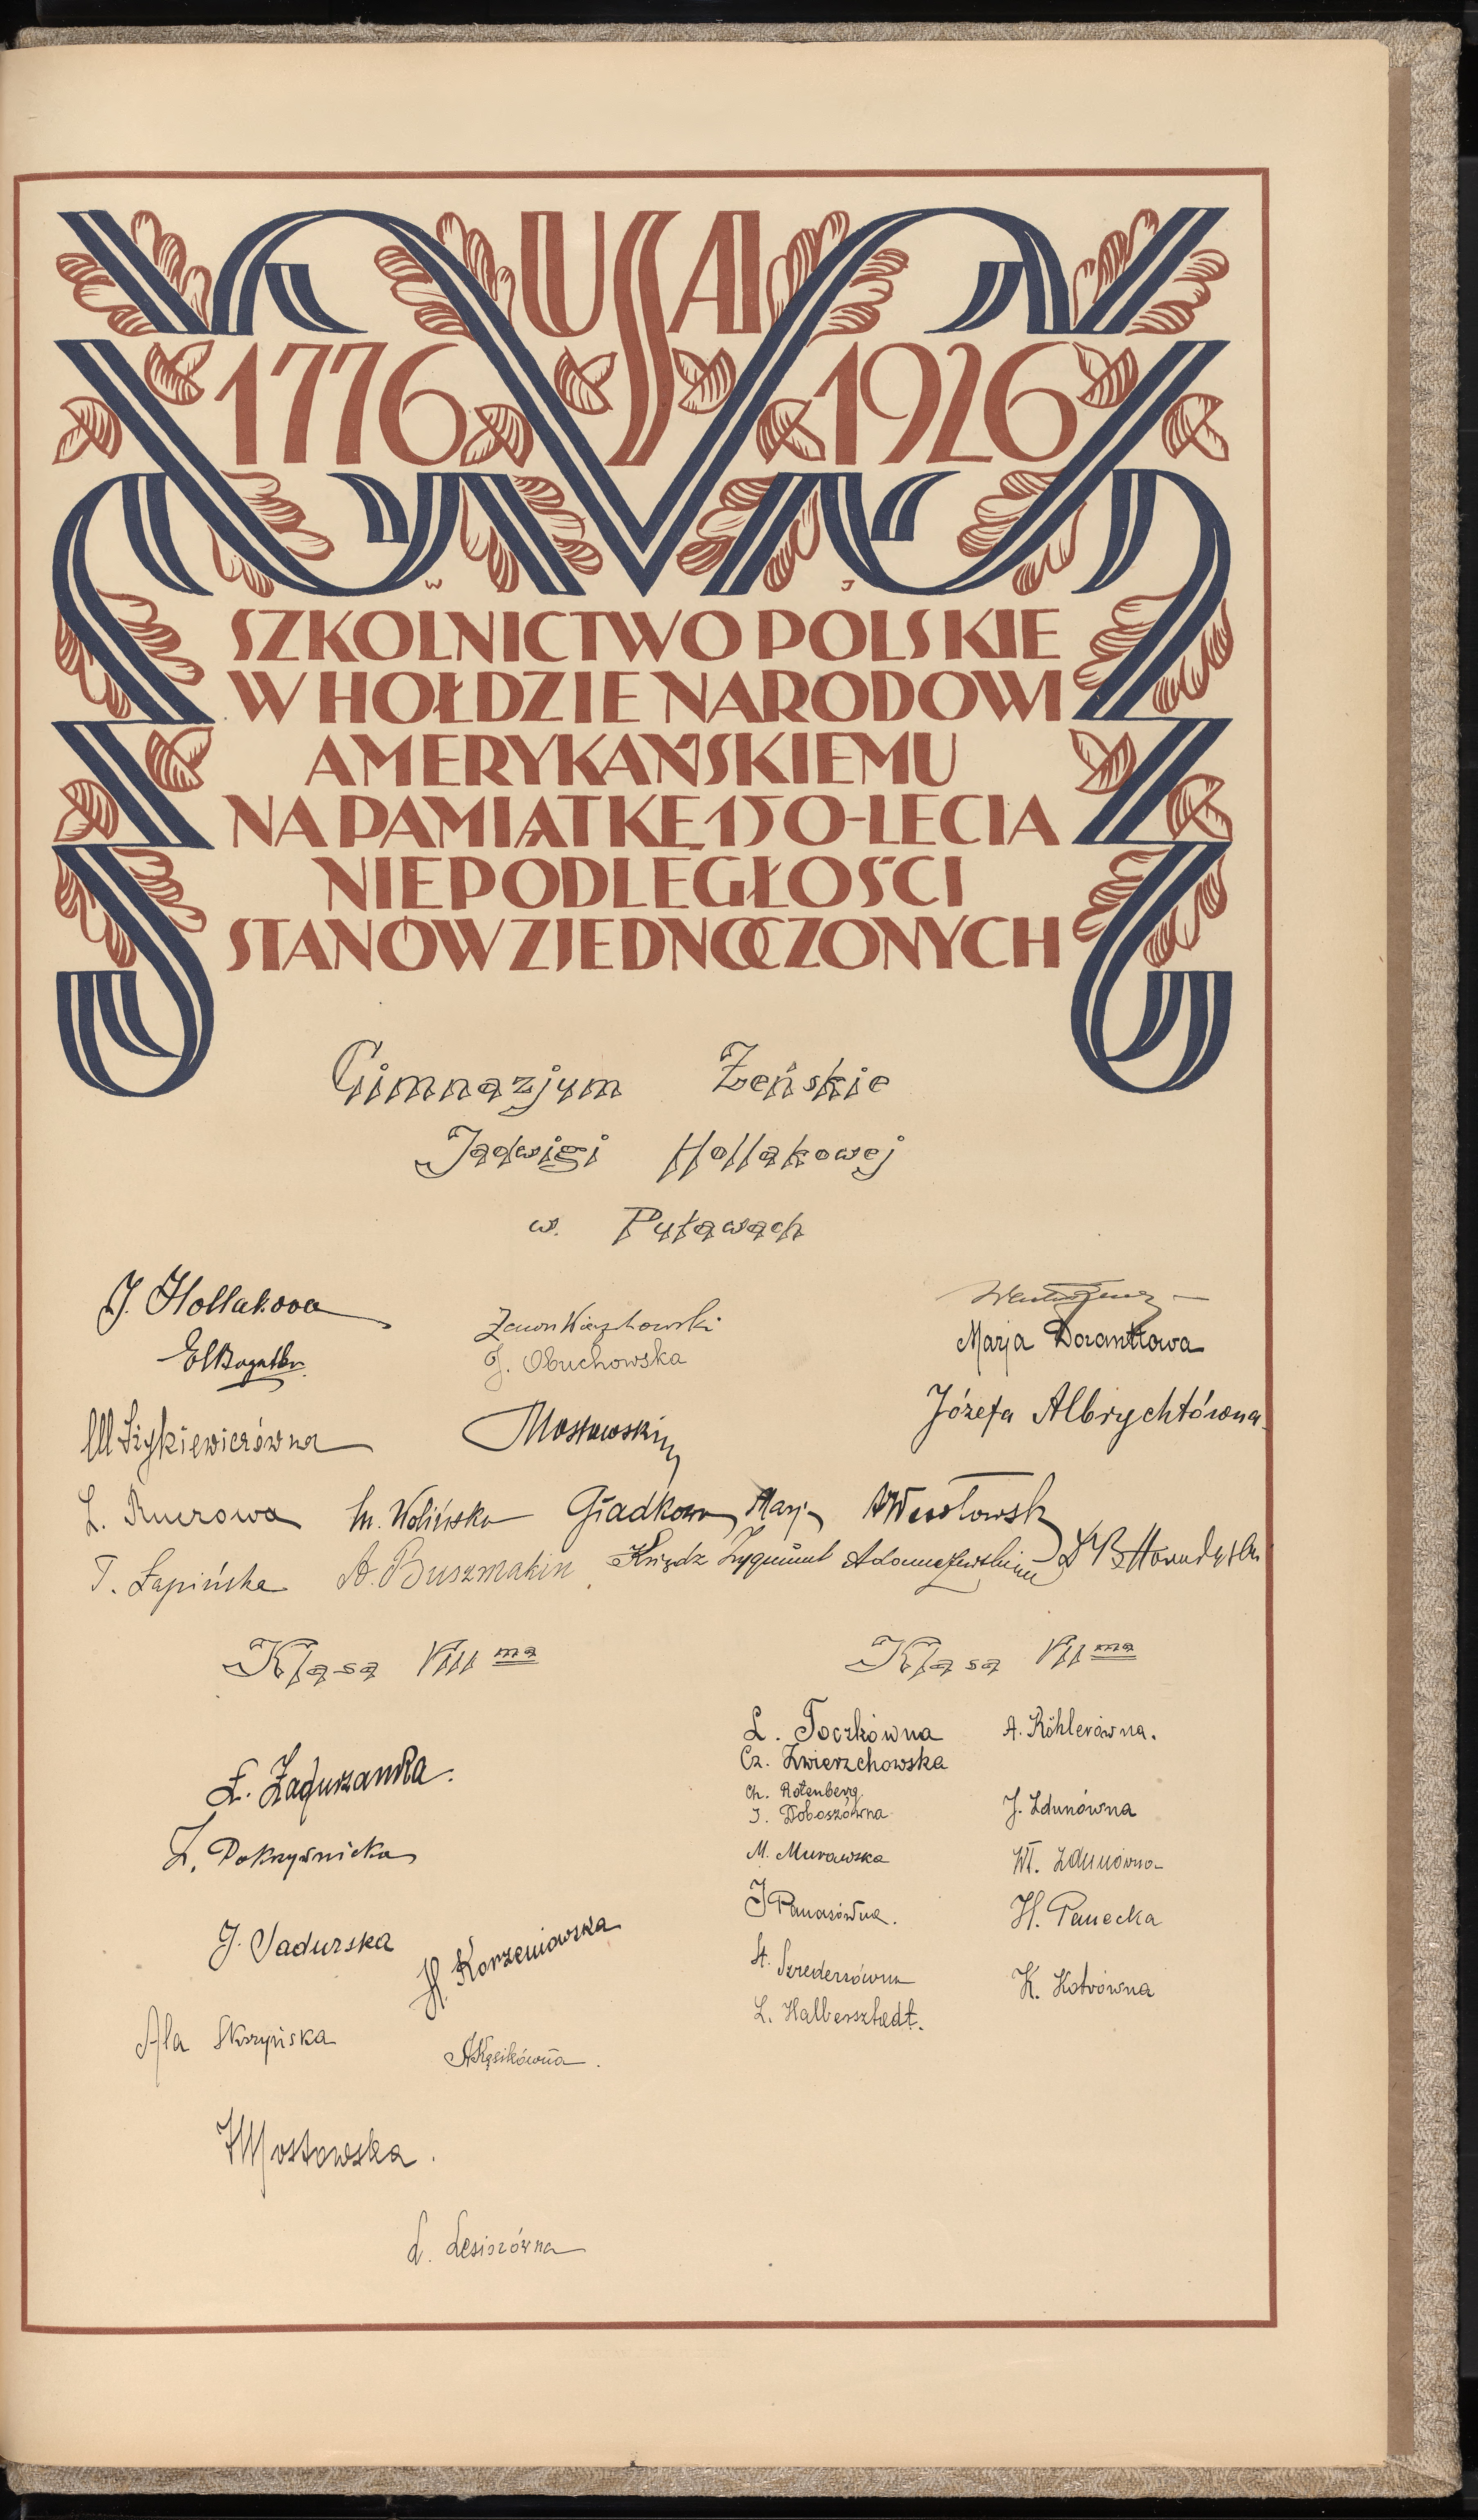 USA
1776 1926
W J
SZKOLNICTWO POLSKIE
W HOŁDZIE NARODOWI
AMERYKAŃSKIEMU
NA PAMIĄTKĘ 150-LECIA
NIEPODLEGŁOŚCI
STANÓW ZJEDNOCZONYCH
Gimnazjum Żeńskie
Jadwigi Hollakowej
w. Puławach
J. Hollakowa
Marja
J. Obuchowska
Józefa Albrychtówna
Mostowski
L. M. Wolińska Gładkowa Marja
T. Łapińska A. Buszmakin Ksiądz Zygmunt
Klasa VIII ma
Klasa VII ma
Ł. Zagurzanka.
Z. Pokrzywnicka
J. Sadurska
H. Korzeniowska
Ala Skrzyńska
A Kęsikówna.
J Mostowska.
L. Lesiorówna
L. Toczkówna
Cz. Zwierzchowska
Ch. Rotenberg
J. Doboszówna
M. Murawska
J Panasówna.
St. Szrederówna
L. Halbersztadt.
A. Köhlerówna.
J. Zdunówna
Wł. Zdunówna
H. Panecka
K. Kotrówna